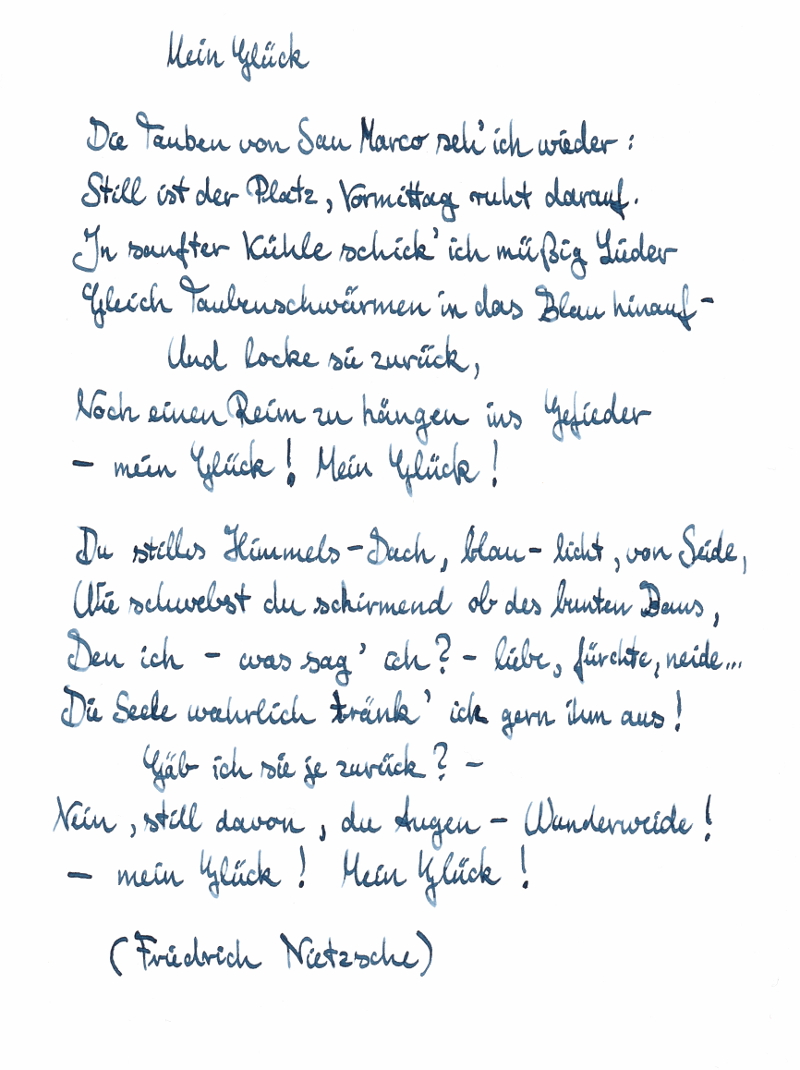 Mein Glück
Die Tauben von San Marco seh' ich wieder :
Still ist der Platz, Vormittag ruht darauf.
In sanfter Kühle schick' ich müßig Lieder
Gleich Taubenschwärmen in das Blau hinauf -
Und locke sie zurück,
Noch einen Reim zu hängen ins Gefieder
- mein Glück ! Mein Glück !
Du stilles Himmels-Dach, blau-licht, von Seide,
Wie schwebst du schirmend ob des bunten Baus,
Den ich - was sag' ich ? - liebe, fürchte, neide...
Die Seele wahrlich tränk' ich gern ihm aus !
Gäb ich sie je zurück ? -
Nein, still davon, du Augen - Wunderweide !
- mein Glück ! Mein Glück !
(Friedrich Nietzsche)